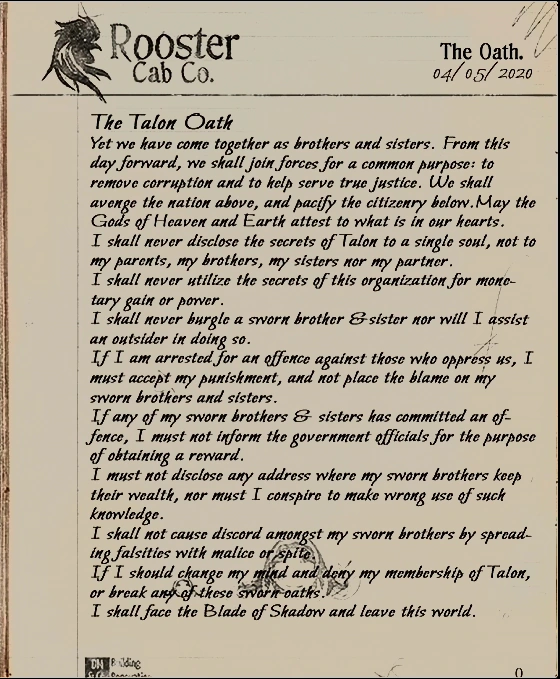 Rooster
Cab Co.
The Oath.
04/05/2020
The Talon Oath
Yet we have come together as brothers and sisters. From this
day forward, we shall join forces for a common purpose: to
remove corruption and to help serve true justice. We shall
avenge the nation above, and pacify the citizenry below.May the
Gods of Heaven and Earth attest to what is in our hearts.
I shall never disclose the secrets of Talon to a single soul, not to
my parents, my brothers, my sisters nor my partner.
I shall never utilize the secrets of this organization for mone-
tary gain or power.
I shall never burgle a sworn brother & sister nor will I assist
an outsider in doing so.
If I am arrested for an offence against those who oppress us, I
must accept my punishment, and not place the blame on my
sworn brothers and sisters.
If any of my sworn brothers & sisters has committed an of-
fence, I must not inform the government officials for the purpose
of obtaining a reward.
I must not disclose any address where my sworn brothers keep
their wealth, nor must I conspire to make wrong use of such
knowledge.
I shall not cause discord amongst my sworn brothers by spread-
ing falsities with malice or spite.
If I should change my mind and deny my membership of Talon,
or break any of these sworn oaths.
I shall face the Blade of Shadow and leave this world.
Building
0